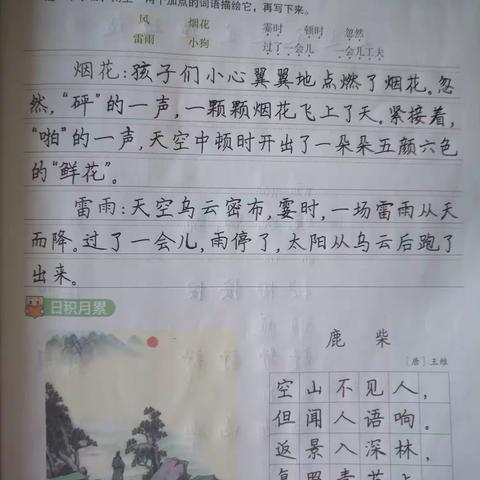 两个加点的词语描绘它，再写下来。
风 烟花 霎时 顿时 忽然
雷雨 小狗 过了一会儿 一会儿工夫
烟花：孩子们小心翼翼地点燃了烟花。忽
然，“砰”的一声，一颗颗烟花飞上了天。紧接着，
“啪”的一声，天空中顿时开出了一朵朵五颜六色
的“鲜花”。
雷雨：天空乌云密布，霎时，一场雷雨从天
而降。过了一会儿，雨停了，太阳从乌云后跑了
出来。
日积月累
鹿柴
［唐］王维
空山不见人，
但闻人语响。
返景入深林，